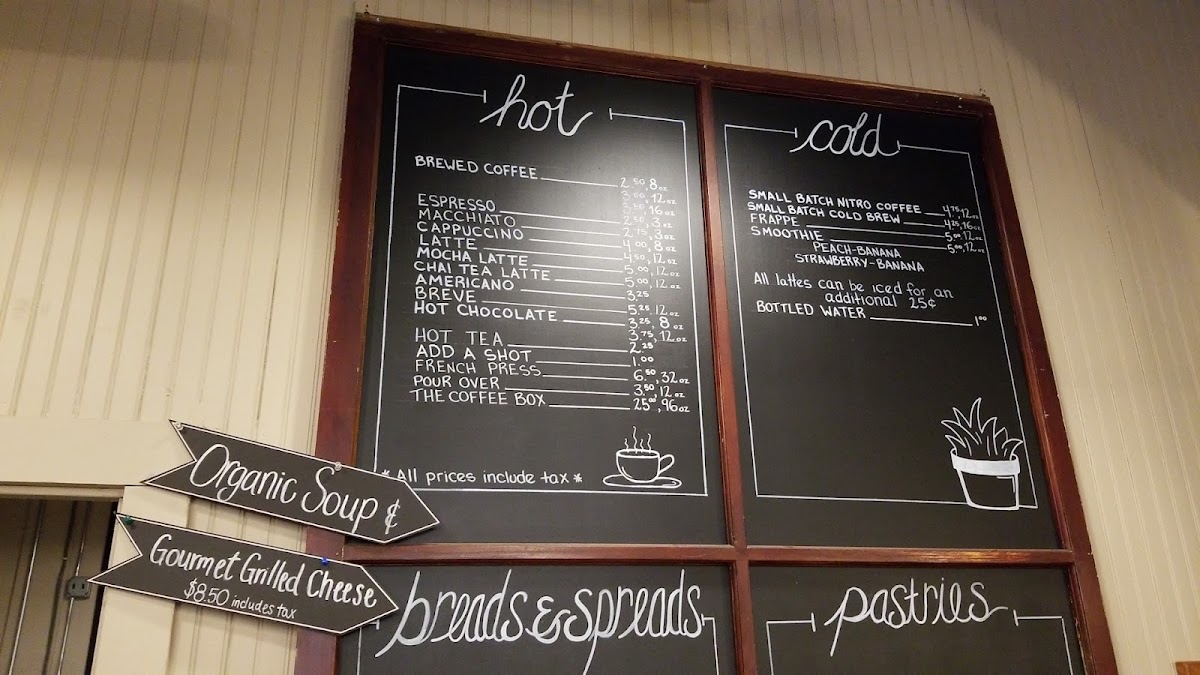 hot
BREWED COFFEE 2.50, 8oz
3.00, 12oz
3.50, 16oz
ESPRESSO 2.50, 3oz
MACCHIATO 2.75, 3oz
CAPPUCCINO 4.00, 8oz
LATTE 4.50, 12oz
MOCHA LATTE 5.00, 12oz
CHAI TEA LATTE 5.00, 12oz
AMERICANO 3.25
BREVE 5.25, 12oz
HOT CHOCOLATE 3.25, 8oz
3.75, 12oz
HOT TEA 2.25
ADD A SHOT 1.00
FRENCH PRESS 6.50, 32oz
POUR OVER 3.50, 12oz
THE COFFEE BOX 25.00, 96oz
*All prices include tax*
cold
SMALL BATCH NITRO COFFEE 4.75, 12oz
SMALL BATCH COLD BREW 4.25, 16oz
FRAPPE 5.00, 12oz
SMOOTHIE 5.00, 12oz
PEACH-BANANA
STRAWBERRY-BANANA
All lattes can be iced for an
additional 25¢
BOTTLED WATER 1.00
Organic Soup &
Gourmet Grilled Cheese
$8.50 includes tax
breads & spreads
pastries